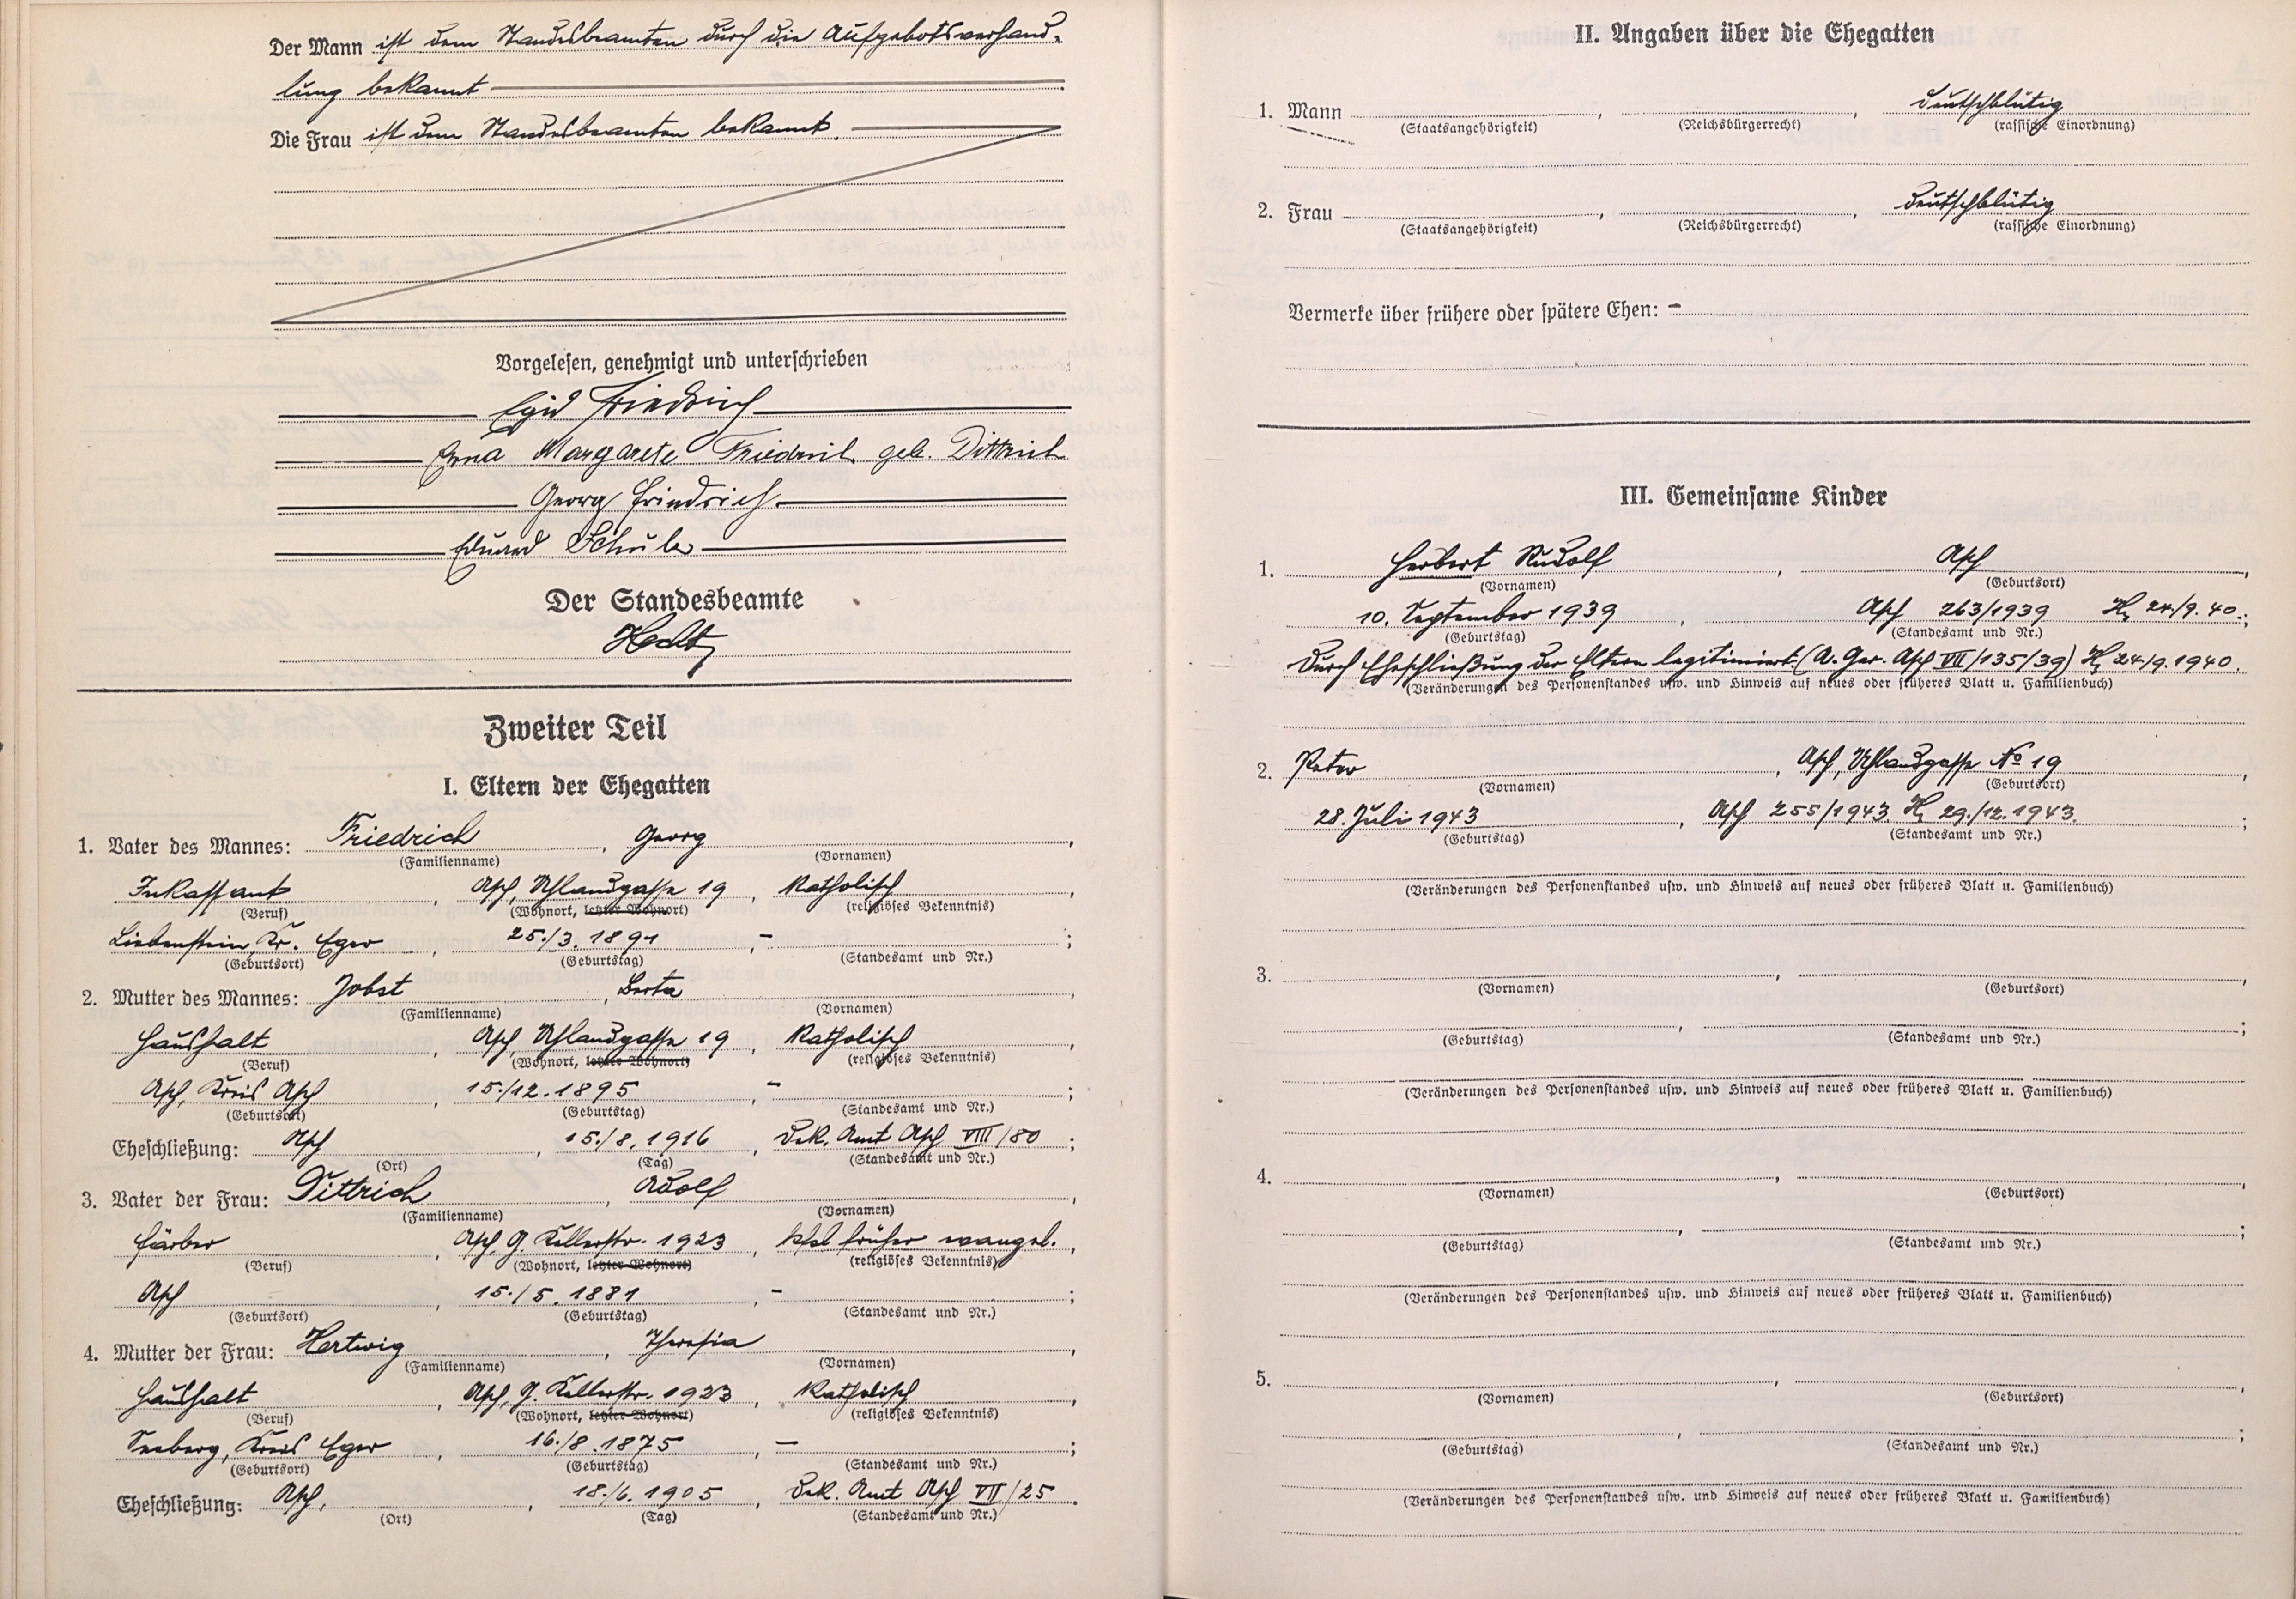 Der Mann ist dem Standesbeamten durch die Aufgebotsverhand-
lung bekannt
Die Frau ist dem Standesbeamten bekannt.
Vorgelesen, genehmigt und unterschrieben
Egid Friedrich
Erna Margarete Friedrich geb. Dittrich
Georg Friedrich
Eduard Schuler
Der Standesbeamte
Hecht
Zweiter Teil
I. Eltern der Ehegatten
1. Vater des Mannes: Friedrich, Georg,
(Familienname) (Vornamen)
Inkassant, Asch, Uhlandgasse 19, katholisch,
(Beruf) (Wohnort, letzter Wohnort) (religiöses Bekenntnis)
Liebenstein, Kr. Eger, 25./3. 1891, - ;
(Geburtsort) (Geburtstag) (Standesamt und Nr.)
2. Mutter des Mannes: Jobst, Berta,
(Familienname) (Vornamen)
Haushalt, Asch, Uhlandgasse 19, katholisch,
(Beruf) (Wohnort, letzter Wohnort) (religiöses Bekenntnis)
Asch, Kreis Asch, 15./12. 1895, - ;
(Geburtsort) (Geburtstag) (Standesamt und Nr.)
Eheschließung: Asch, 15./8. 1916, Dek. Amt Asch VIII/80 ;
(Ort) (Tag) (Standesamt und Nr.)
3. Vater der Frau: Dittrich, Adolf,
(Familienname) (Vornamen)
Färber, Asch, G. Kellerstr. 1923, früher evangel.,
(Beruf) (Wohnort, letzter Wohnort) (religiöses Bekenntnis)
Asch, 15./5. 1881, - ;
(Geburtsort) (Geburtstag) (Standesamt und Nr.)
4. Mutter der Frau: Hertwig, Theresia,
(Familienname) (Vornamen)
Haushalt, Asch, G. Kellerstr. 1923, katholisch,
(Beruf) (Wohnort, letzter Wohnort) (religiöses Bekenntnis)
Seeberg, Kreis Eger, 16./8. 1875, - ;
(Geburtsort) (Geburtstag) (Standesamt und Nr.)
Eheschließung: Asch, 18./6. 1905, Dek. Amt Asch VII/25.
(Ort) (Tag) (Standesamt und Nr.)
II. Angaben über die Ehegatten
1. Mann , , deutschblütig
(Staatsangehörigkeit) (Reichsbürgerrecht) (rassische Einordnung)
2. Frau , , deutschblütig
(Staatsangehörigkeit) (Reichsbürgerrecht) (rassische Einordnung)
Vermerke über frühere oder spätere Ehen: -
III. Gemeinsame Kinder
1. Herbert Rudolf, Asch,
(Vornamen) (Geburtsort)
10. September 1939, Asch 263/1939 24/9. 40. ;
(Geburtstag) (Standesamt und Nr.)
Durch Eheschließung der Eltern legitimiert. (A. Ger. Asch VIII/135/39) 24/9. 1940.
(Veränderungen des Personenstandes usw. und Hinweis auf neues oder früheres Blatt u. Familienbuch)
2. Peter, Asch, Uhlandgasse No 19,
(Vornamen) (Geburtsort)
28. Juli 1943, Asch 255/1943 29./12. 1943. ;
(Geburtstag) (Standesamt und Nr.)
(Veränderungen des Personenstandes usw. und Hinweis auf neues oder früheres Blatt u. Familienbuch)
3. , ,
(Vornamen) (Geburtsort)
, ;
(Geburtstag) (Standesamt und Nr.)
(Veränderungen des Personenstandes usw. und Hinweis auf neues oder früheres Blatt u. Familienbuch)
4. , ,
(Vornamen) (Geburtsort)
, ;
(Geburtstag) (Standesamt und Nr.)
(Veränderungen des Personenstandes usw. und Hinweis auf neues oder früheres Blatt u. Familienbuch)
5. , ,
(Vornamen) (Geburtsort)
, ;
(Geburtstag) (Standesamt und Nr.)
(Veränderungen des Personenstandes usw. und Hinweis auf neues oder früheres Blatt u. Familienbuch)